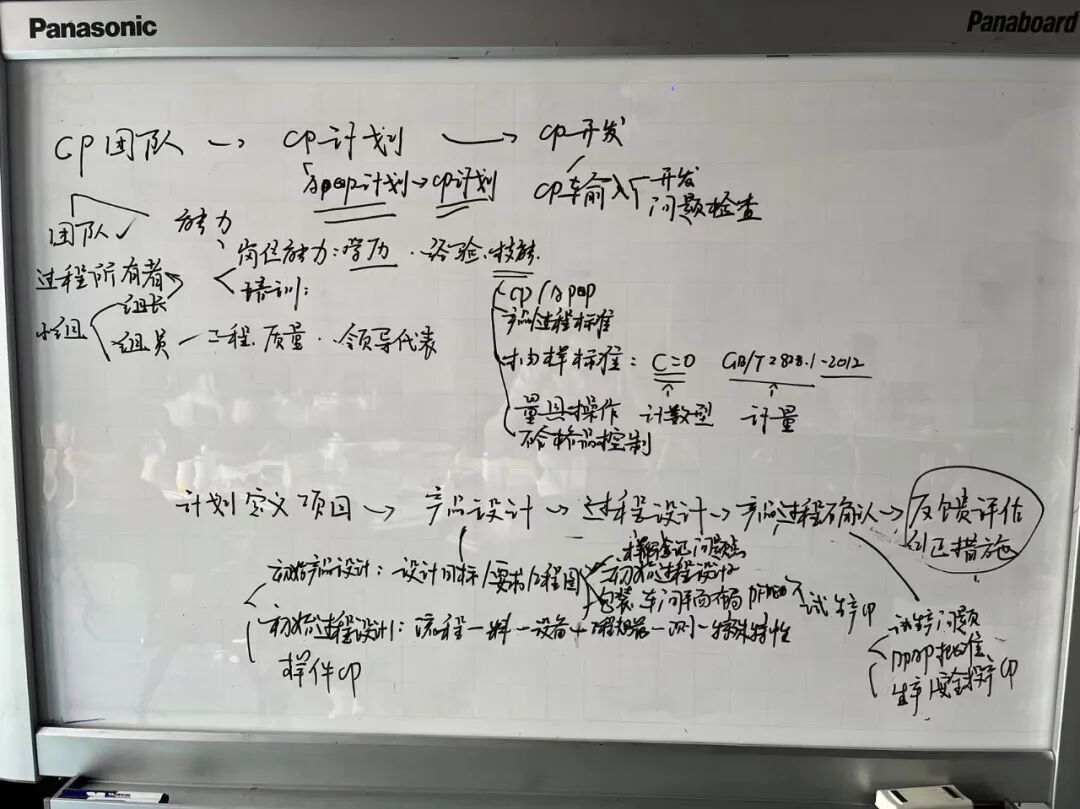 Panasonic
Panaboard
CP团队 → CP计划 → CP开发
APQP计划→CP计划
CP输入 开发
问题检查
团队✓ 能力
过程所有者
岗位能力：学历．经验．技能．
培训：
小组 组长
组员 — 工程．质量．．领导代表
CP/APQP
产品过程标准
抽样标准：C=0 GB/T2828.1-2012
量具操作 计数型 计量
不合格品控制
计划定义项目 → 产品设计 → 过程设计 → 产品过程确认 → 反馈评估
纠正措施
样件验证问题点
初始产品设计：设计目标/要求/工程图
初始过程设计
包装．车间平面布局 PFMEA 试生产CP
初始过程设计：流程—料—设备+ —测—特殊特性
样件CP
试生产问题
PPAP批准．
生产/安全投产CP
Panasonic